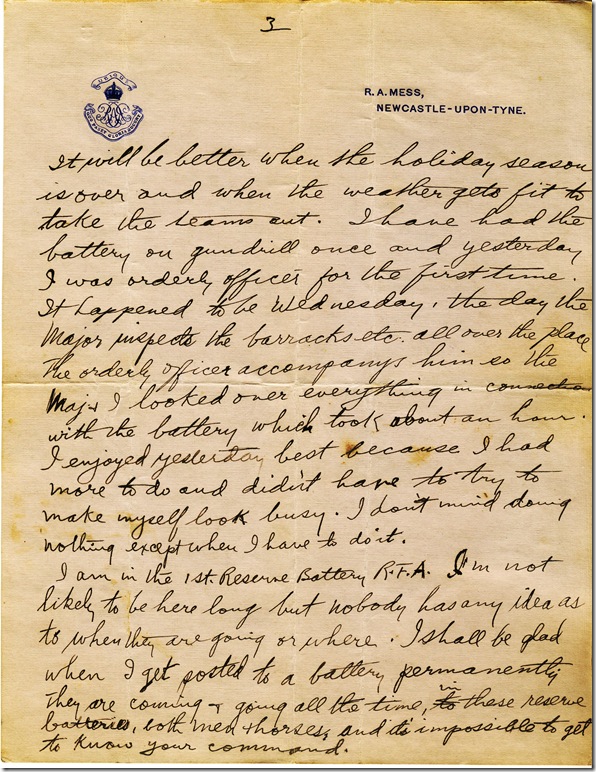 3
UBIQUE
R.A. MESS,
NEWCASTLE-UPON-TYNE.
It will be better when the holiday season
is over and when the weather gets fit to
take the teams out. I have had the
battery on gundrill once and yesterday
I was orderly officer for the first time.
It happened to be Wednesday, the day the
Major inspects the barracks etc. all over the place
The orderly officer accompanys him so the
Maj & I looked over everything in connection
with the battery which took about an hour.
I enjoyed yesterday best because I had
more to do and didn't have to try to
make myself look busy. I don't mind doing
nothing except when I have to do it.
I am in the 1st Reserve Battery R.F.A. I'm not
likely to be here long but nobody has any idea as
to when they are going or where. I shall be glad
when I get posted to a battery permanently
They are coming & going all the time, in these reserve
batteries, both men & horses, and it's impossible to get
to know your command.